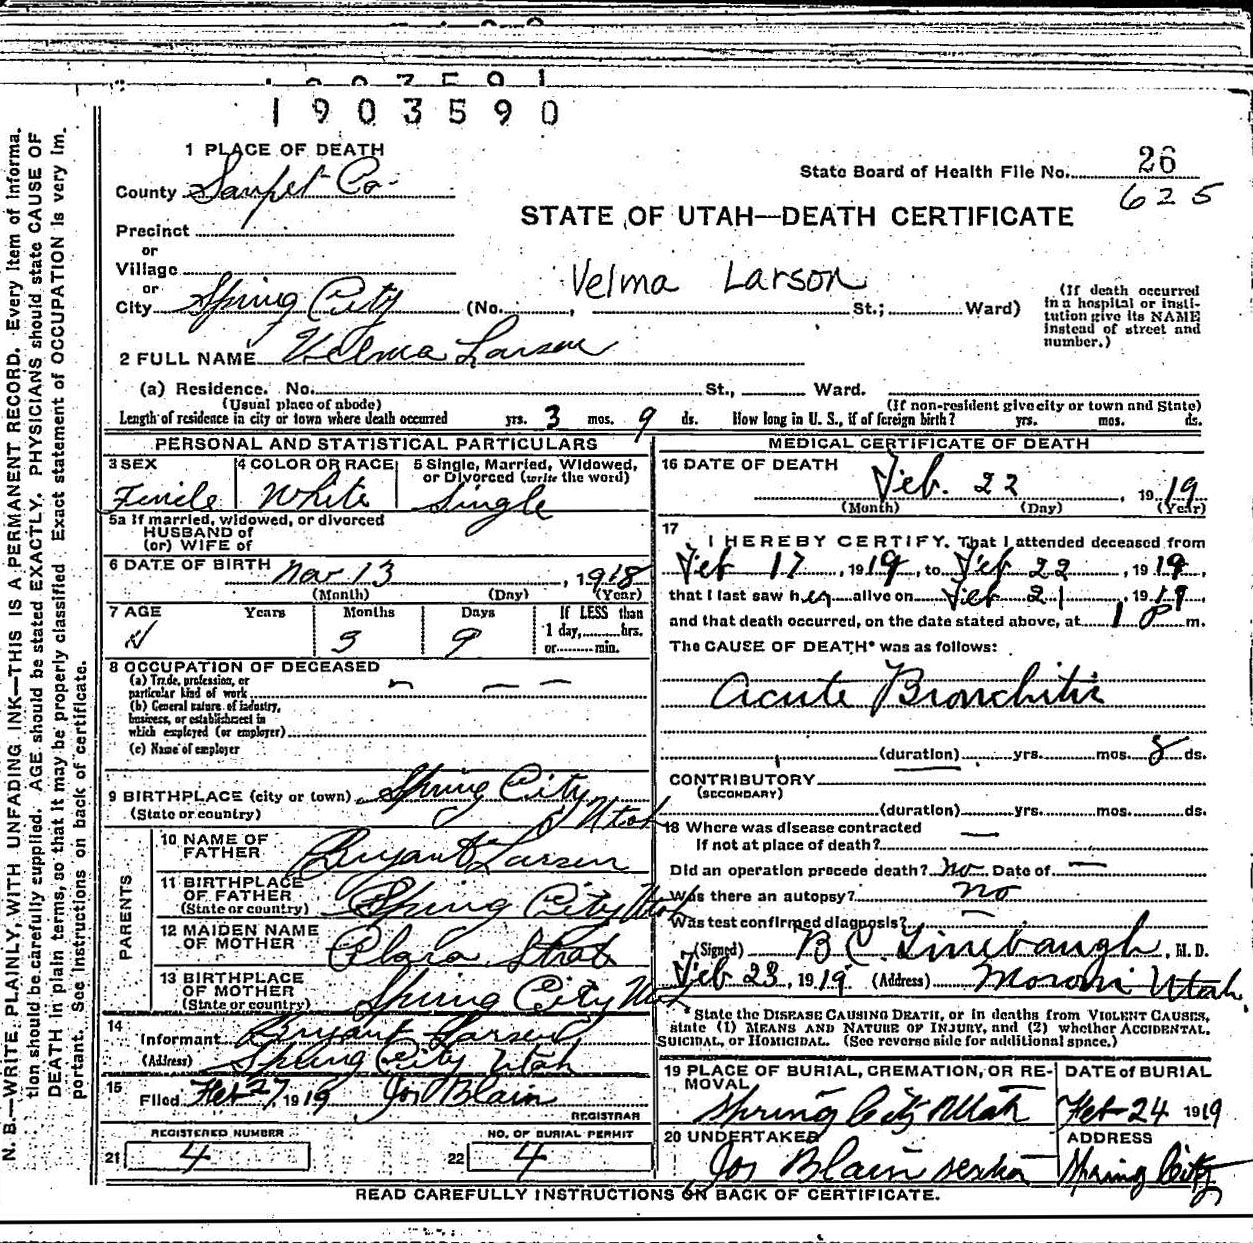 1903590
1 PLACE OF DEATH
County Sanpet Co.
State Board of Health File No. 26
625
STATE OF UTAH—DEATH CERTIFICATE
Precinct
or
Village
or
City Spring City (No. , St.; Ward)
Velma Larson
(If death occurred in a hospital or institution give its NAME instead of street and number.)
2 FULL NAME Velma Larsen
(a) Residence. No. St., Ward.
(Usual place of abode) (If non-resident give city or town and State)
Length of residence in city or town where death occurred yrs. 3 mos. 9 ds. How long in U. S., if of foreign birth? yrs. mos. ds.
PERSONAL AND STATISTICAL PARTICULARS
3 SEX 4 COLOR OR RACE 5 Single, Married, Widowed, or Divorced (write the word)
White Single
5a If married, widowed, or divorced
HUSBAND of
(or) WIFE of
6 DATE OF BIRTH Nov 13, 1918
(Month) (Day) (Year)
7 AGE Years Months Days If LESS than
3 9 1 day, hrs.
or min.
8 OCCUPATION OF DECEASED
(a) Trade, profession, or
particular kind of work
(b) General nature of industry,
business, or establishment in
which employed (or employer)
(c) Name of employer
9 BIRTHPLACE (city or town) Spring City
(State or country) Utah
PARENTS
10 NAME OF FATHER Bryant Larsen
11 BIRTHPLACE OF FATHER Spring City Utah
(State or country)
12 MAIDEN NAME OF MOTHER Clara
13 BIRTHPLACE OF MOTHER Spring City Utah
(State or country)
14
Informant Bryant Larsen
(Address) Spring City Utah
15
Filed Feb 27, 1919 Jos Blain
REGISTRAR
REGISTERED NUMBER NO. OF BURIAL PERMIT
21 4 22 4
MEDICAL CERTIFICATE OF DEATH
16 DATE OF DEATH
Feb. 22, 1919
(Month) (Day) (Year)
17
I HEREBY CERTIFY, That I attended deceased from
Feb 17, 1919, to Feb 22, 1919,
that I last saw her alive on Feb 21, 1919
and that death occurred, on the date stated above, at 1 P m.
The CAUSE OF DEATH* was as follows:
Acute Bronchitis
(duration) yrs. mos. 8 ds.
CONTRIBUTORY
(SECONDARY)
(duration) yrs. mos. ds.
18 Where was disease contracted
If not at place of death?
Did an operation precede death? no Date of
Was there an autopsy? no
Was test confirmed diagnosis?
(Signed) B C Linebaugh, M. D.
Feb 23, 1919 (Address) Moroni Utah
*State the DISEASE CAUSING DEATH, or in deaths from VIOLENT CAUSES,
state (1) MEANS AND NATURE OF INJURY, and (2) whether ACCIDENTAL,
SUICIDAL, or HOMICIDAL. (See reverse side for additional space.)
19 PLACE OF BURIAL, CREMATION, OR REMOVAL DATE of BURIAL
Spring City Utah Feb 24 1919
20 UNDERTAKER ADDRESS
Jos Blain sexton Spring City
READ CAREFULLY INSTRUCTIONS ON BACK OF CERTIFICATE.
N. B.—WRITE PLAINLY, WITH UNFADING INK—THIS IS A PERMANENT RECORD. Every item of informa-
tion should be carefully supplied. AGE should be stated EXACTLY. PHYSICIANS should state CAUSE OF
DEATH in plain terms, so that it may be properly classified. Exact statement of OCCUPATION is very im-
portant. See instructions on back of certificate.